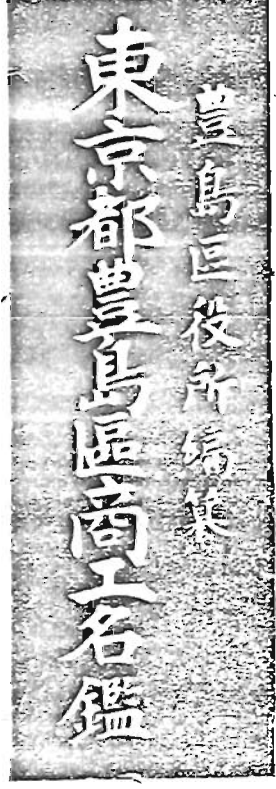 豊島区役所編纂
東京都豊島區商工名鑑